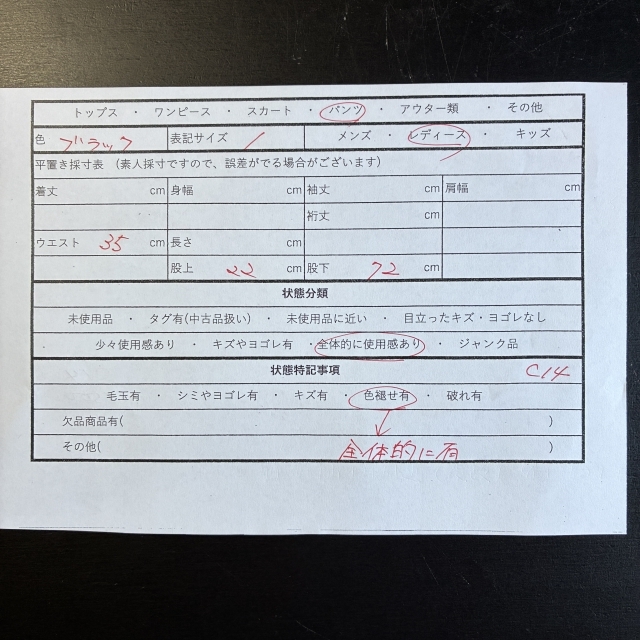 トップス ・ ワンピース ・ スカート ・ パンツ ・ アウター類 ・ その他
色 ブラック 表記サイズ / メンズ ・ レディース ・ キッズ
平置き採寸表 (素人採寸ですので、誤差がでる場合がございます)
着丈 cm 身幅 cm 袖丈 cm 肩幅 cm
裄丈 cm
ウエスト 35 cm 長さ cm
股上 22 cm 股下 72 cm
状態分類
未使用品 ・ タグ有(中古品扱い) ・ 未使用品に近い ・ 目立ったキズ・ヨゴレなし
少々使用感あり ・ キズやヨゴレ有 ・ 全体的に使用感あり ・ ジャンク品
状態特記事項 C14
毛玉有 ・ シミやヨゴレ有 ・ キズ有 ・ 色褪せ有 ・ 破れ有
欠品商品有( )
その他( 全体的に有 )